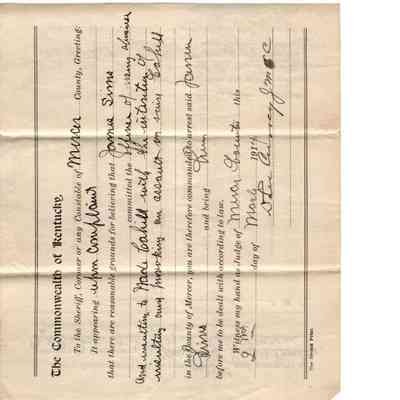 The Commonwealth of Kentucky.
To the Sheriff, Coroner or any Constable of Mercer County, Greeting:
It appearing upon complaint
that there are reasonable grounds for believing that James Sims
committed the offense of using abusive
and insulting to Wade Cahill with the intention of
insulting and provoking an assault on said Cahill
in the County of Mercer, you are therefore commanded to arrest said James
Sims and bring him
before me to be dealt with according to law.
Witness my hand as Judge of Mercer County this
2 day of 191